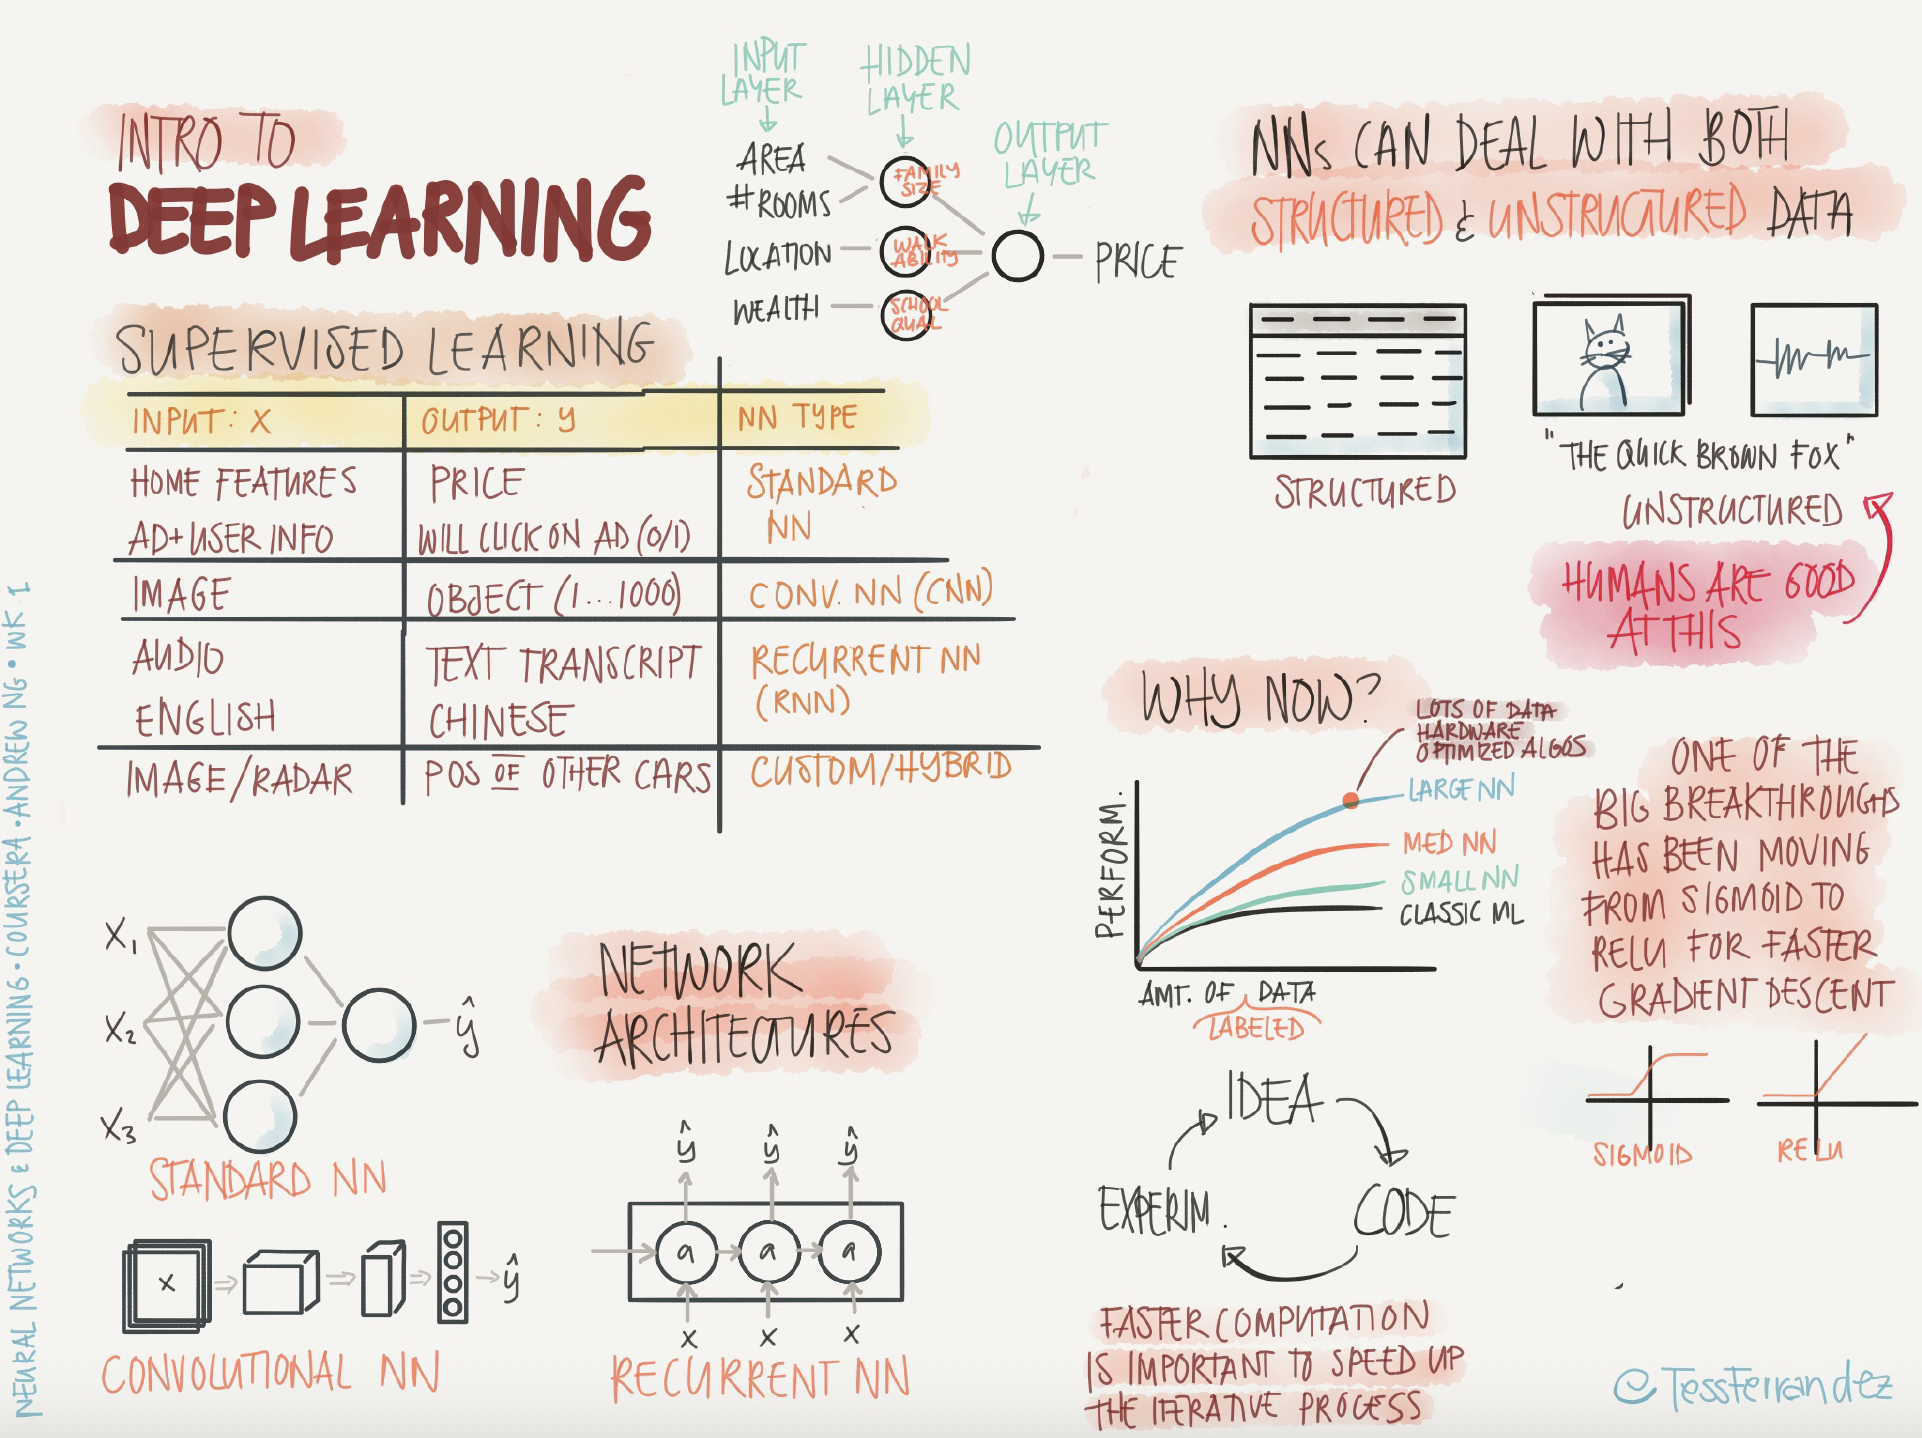 INTRO TO
DEEP LEARNING
INPUT
LAYER
HIDDEN
LAYER
OUTPUT
LAYER
AREA
# ROOMS
LOCATION
WEALTH
FAMILY
SIZE
WALK
ABILITY
SCHOOL
QUAL
PRICE
SUPERVISED LEARNING
INPUT: X OUTPUT: Y NN TYPE
HOME FEATURES PRICE STANDARD
AD + USER INFO WILL CLICK ON AD (0/1) NN
IMAGE OBJECT (1...1000) CONV. NN (CNN)
AUDIO TEXT TRANSCRIPT RECURRENT NN
ENGLISH CHINESE (RNN)
IMAGE/RADAR POS OF OTHER CARS CUSTOM/HYBRID
NNs CAN DEAL WITH BOTH
STRUCTURED & UNSTRUCTURED DATA
STRUCTURED
"THE QUICK BROWN FOX"
UNSTRUCTURED
HUMANS ARE GOOD
AT THIS
WHY NOW?
LOTS OF DATA
HARDWARE
OPTIMIZED ALGOS
LARGE NN
MED NN
SMALL NN
CLASSIC ML
PERFORM.
AMT. OF DATA
LABELED
ONE OF THE
BIG BREAKTHROUGHS
HAS BEEN MOVING
FROM SIGMOID TO
RELU FOR FASTER
GRADIENT DESCENT
SIGMOID
RELU
IDEA
CODE
EXPERIM.
FASTER COMPUTATION
IS IMPORTANT TO SPEED UP
THE ITERATIVE PROCESS
NETWORK
ARCHITECTURES
X1
X2
X3
ŷ
STANDARD NN
X
ŷ
CONVOLUTIONAL NN
ŷ ŷ ŷ
a a a
X X X
RECURRENT NN
NEURAL NETWORKS & DEEP LEARNING • COURSERA • ANDREW NG • WK 1
@TessFerrandez